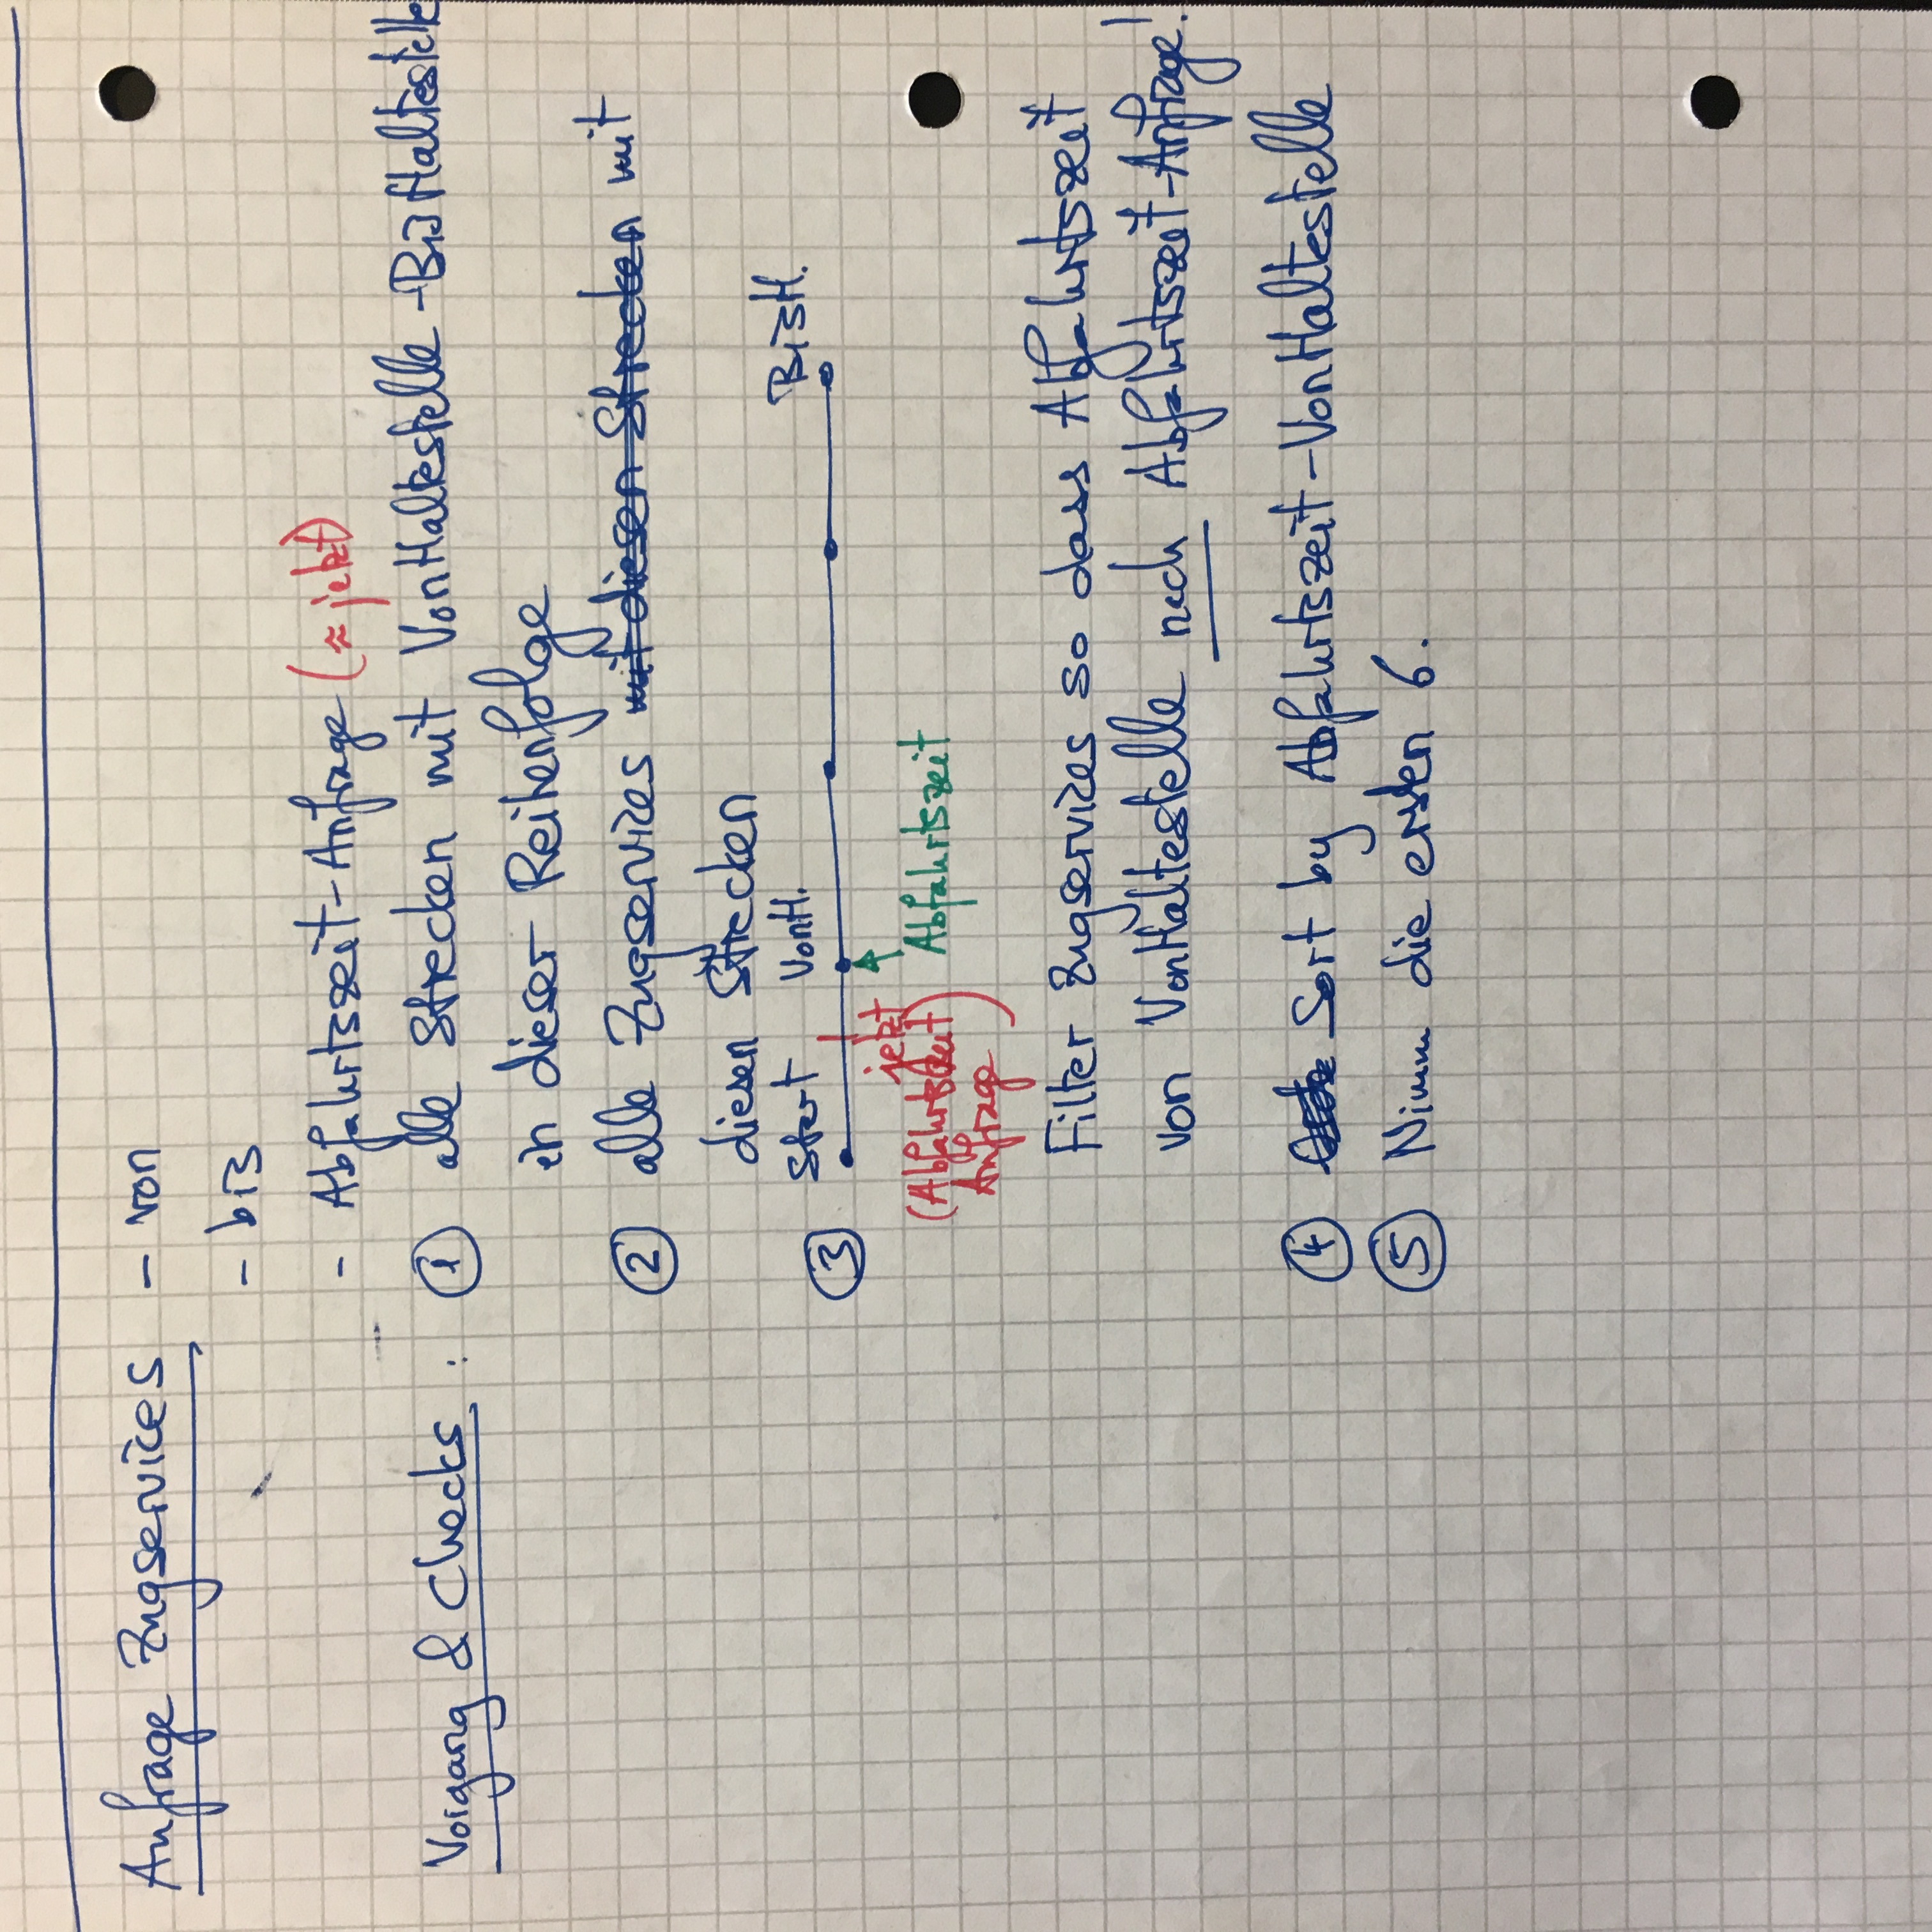 Anfrage Zugservices - von
- bis
- Abfahrtszeit-Anfrage (≈ jetzt)
Vorgang & Checks : ① alle Strecken mit VonHaltestelle-BisHaltestelle
in dieser Reihenfolge
② alle Zugservices mit diesen Strecken mit
diesen Strecken
③ Start VonH. BisH.
jetzt
(Abfahrtszeit Anfrage)
Abfahrtszeit
Filter Zugservices so dass Abfahrtszeit
von VonHaltestelle nach Abfahrtszeit-Anfrage!
④ Sort by Abfahrtszeit-VonHaltestelle
⑤ Nimm die ersten 6.